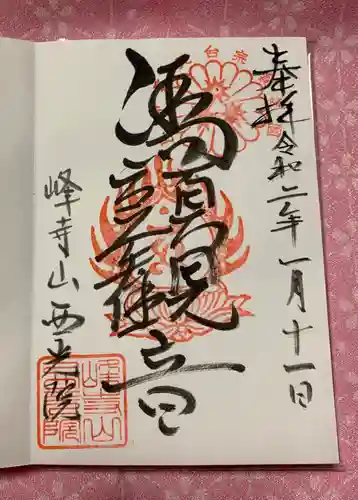 奉拝 令和二年一月十一日
馬頭觀音
峰寺山 西光院
台宗
峰寺山